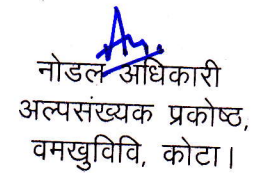 नोडल अधिकारी
अल्पसंख्यक प्रकोष्ठ,
वमखुविवि, कोटा।